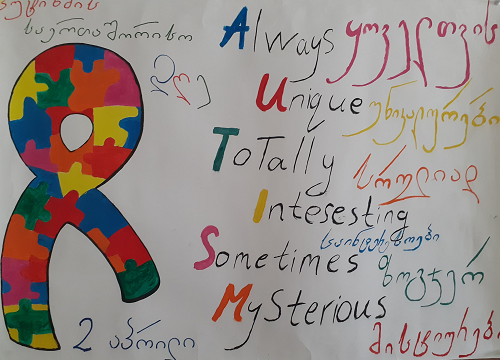 აუტიზმის
საერთაშორისო
დღე
Always ყოველთვის
Unique უნიკალურები
Totally სრულიად
Intesesting
საინტერესოები
Sometimes ზოგჯერ
Mysterious
მისტიურები
2 აპრილი